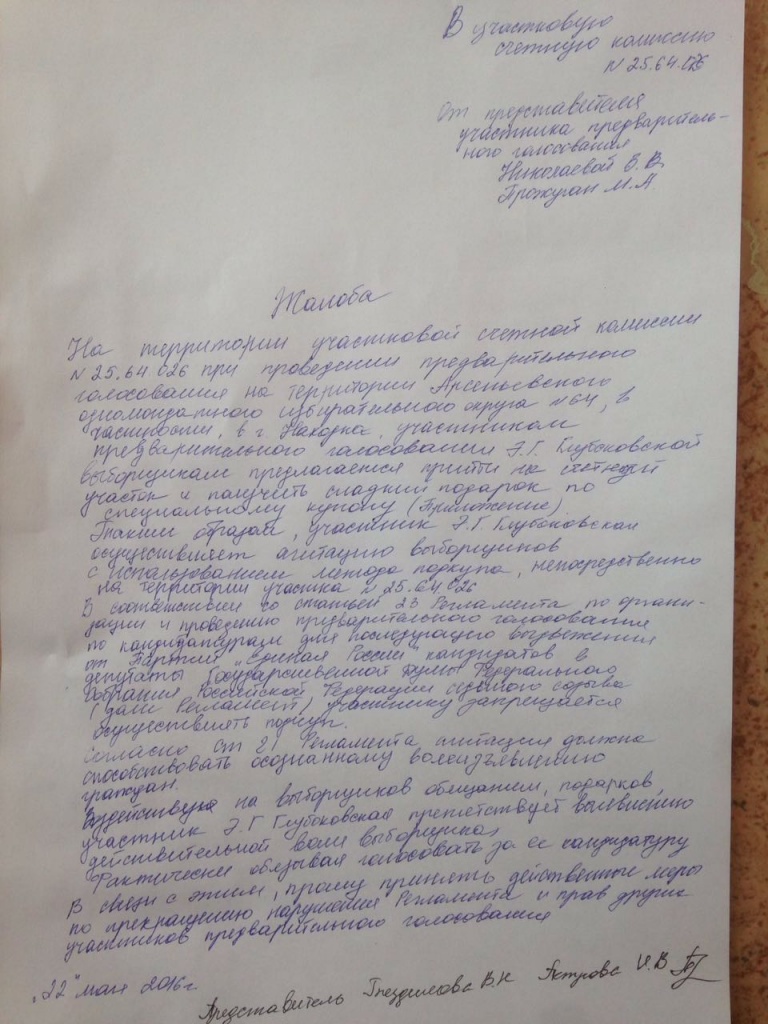 В участковую
счетную комиссию
N 25.64.026
От представителя
участника предваритель-
ного голосования
Николаевой В. В.
Прожуган М. А.
Жалоба
На территории участковой счетной комиссии
N 25.64 026 при проведении предварительного
голосования на территории Арсеньевского
одномандатного избирательного округа №64, в
частности, в г. Находка, участником
предварительного голосования Э.Г. Глубоковской
выборщикам предлагается прийти на счетный
участок и получить сладкий подарок по
специальному купону (Приложение)
Таким образом, участник Э.Г Глубоковская
осуществляет агитацию выборщиков
с использованием метода подкупа, непосредственно
на территории участка N 25.64 026
В соответствии со статьей 23 Регламента по органи-
зации и проведению предварительного голосования
по кандидатурам для последующего выдвижения
от Партии "Единая Россия" кандидатов в
депутаты Государственной Думы Федерального
Собрания Российской Федерации седьмого созыва
(дали Регламент) участнику запрещается
осуществлять подкуп.
Согласно ст 21 Регламента агитация должна
способствовать осознанному волеизъявлению
граждан.
Воздействуя на выборщиков обещанием, подарков,
участник Э.Г Глубоковская препятствует выявлению
действительной воли выборщика,
Фактически обязывая голосовать за ее кандидатуру
В связи с этим, прошу принять действенные меры
по прекращению нарушения Регламента и прав других
участников предварительного голосования
"22" мая 2016г.
Представитель В.Н Петрова И.В